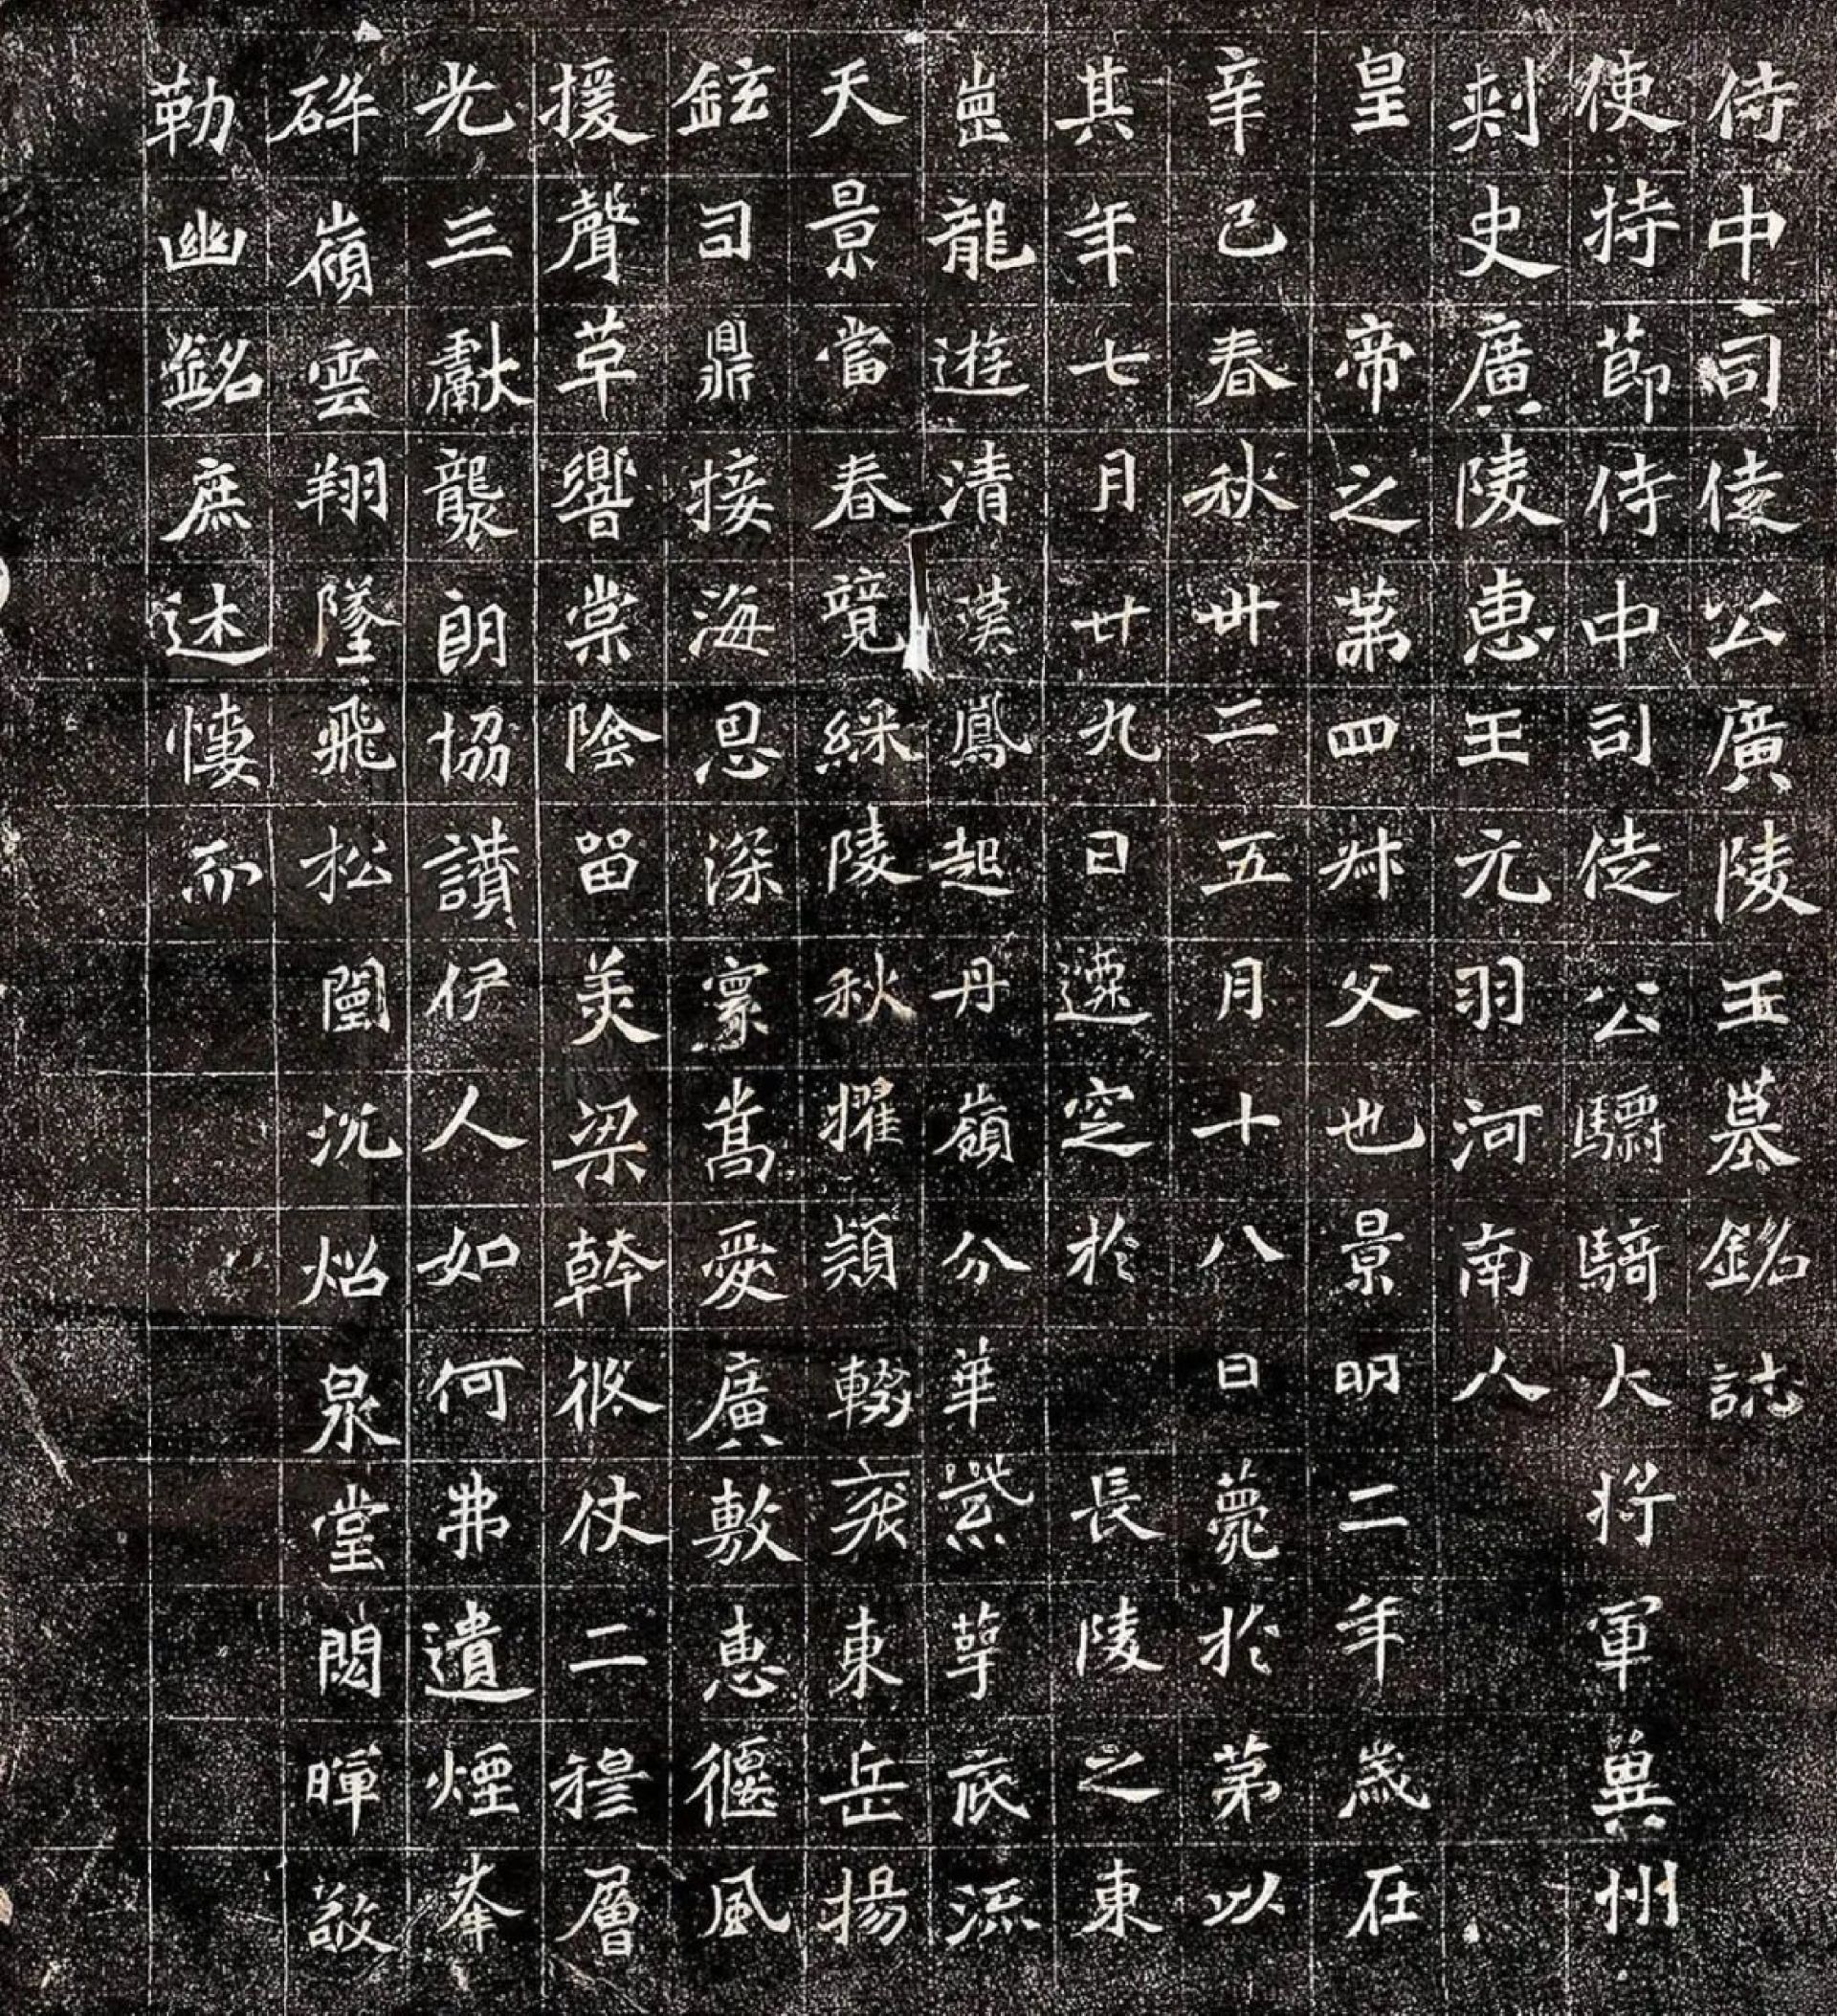 侍中司徒公廣陵王墓銘誌
使持節侍中司徒公驃騎大將軍冀州
刺史廣陵惠王元羽河南人
皇帝之第四叔父也景明二年歲在
辛巳春秋卅二五月十八日薨於第以
其年七月廿九日遷窆於長陵之東
崗龍遊清漢鳳起丹嶺分華紫萼底流
天景當春競綵陵秋擢穎輟袞東岳揚
鉉司鼎接海恩深嵩愛廣敷惠偃風
援聲草響棠陰留美梁榦攸仗二穆層
光三獻襲朗協讚伊人如何弗遺煙峯
碎嶺雲翔墜飛松閨沉炤泉堂閟暉敬
勒幽銘庶述悽而